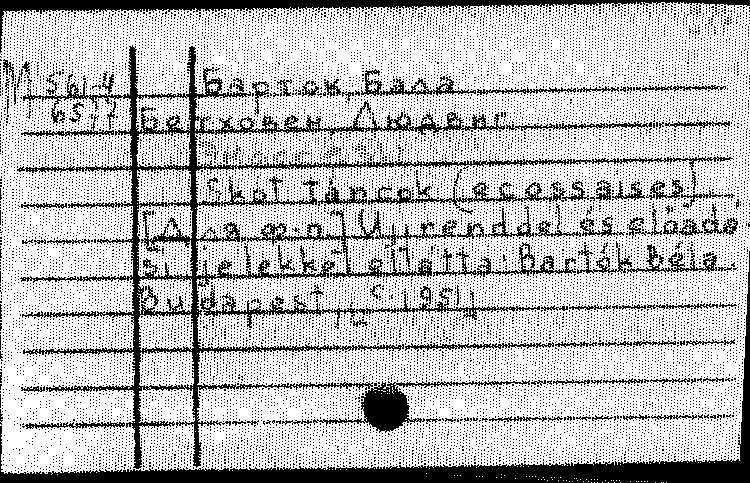 М 561-4 Барток, Бала
65
Бетховен, Людвиг.
Skot táncok (ecossaises).
[Для ф-п.] Uj renddel és előadá-
si jelekkel ellátta: Bartók Béla.
Budapest, c. 1951,